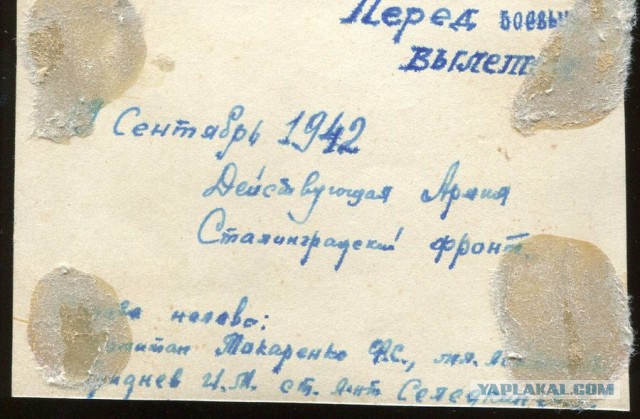 Перед боевы
вылет
Сентябрь 1942
Действующая Армия
Сталинградский фронт.
налево:
Макаренко Ф.С., мл.
И.М. ст. л-нт
YAPLAKAL.COM